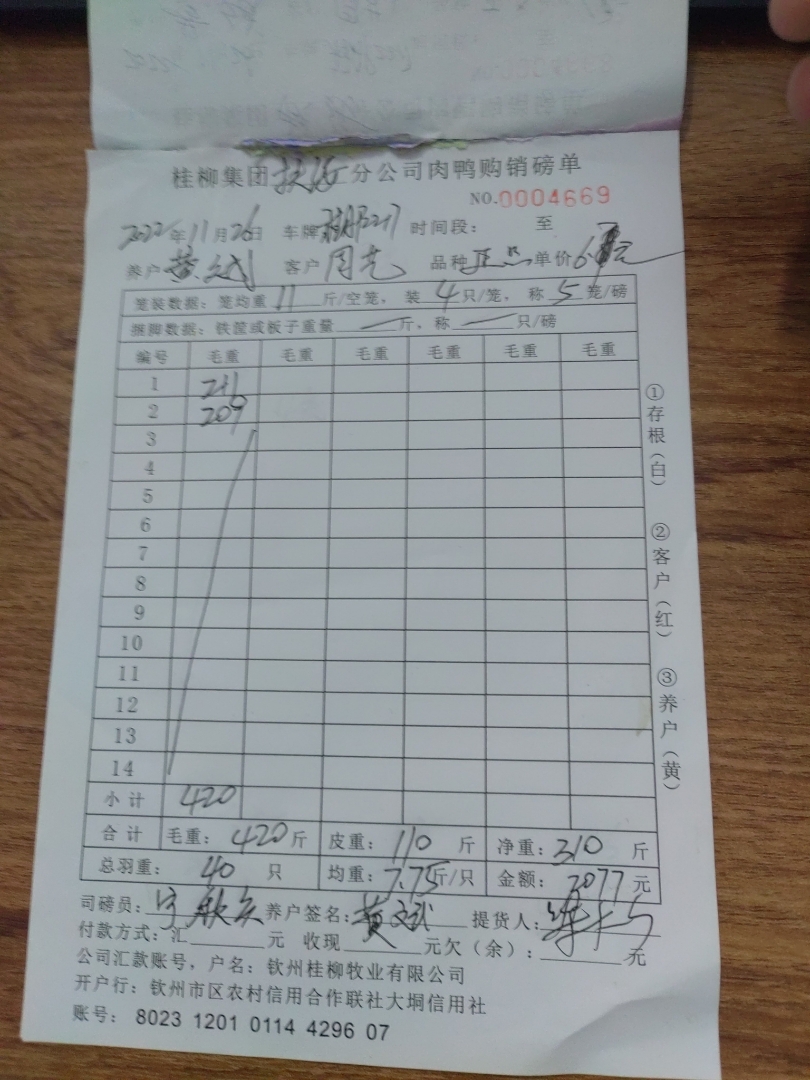 桂柳集团 分公司肉鸭购销磅单
NO.0004669
2022年11月26日 车牌 时间段: 至
养户黄文斌 客户周 品种正 单价6.
笼装数据: 笼均重11斤/空笼, 装4只/笼, 称5笼/磅
捆脚数据: 铁筐或板子重量 斤, 称 只/磅
编号 毛重 毛重 毛重 毛重 毛重 毛重
1 211
2 209
3
4
5
6
7
8
9
10
11
12
13
14
小计 420
合计 毛重: 420斤 皮重: 110斤 净重: 310斤
总羽重: 40只 均重: 7.75斤/只 金额: 2077元
司磅员: 养户签名: 黄文斌 提货人:
付款方式: 汇 元 收现 元欠(余): 元
公司汇款账号, 户名: 钦州桂柳牧业有限公司
开户行: 钦州市区农村信用合作联社大垌信用社
账号: 8023 1201 0114 4296 07
①存根(白) ②客户(红) ③养户(黄)